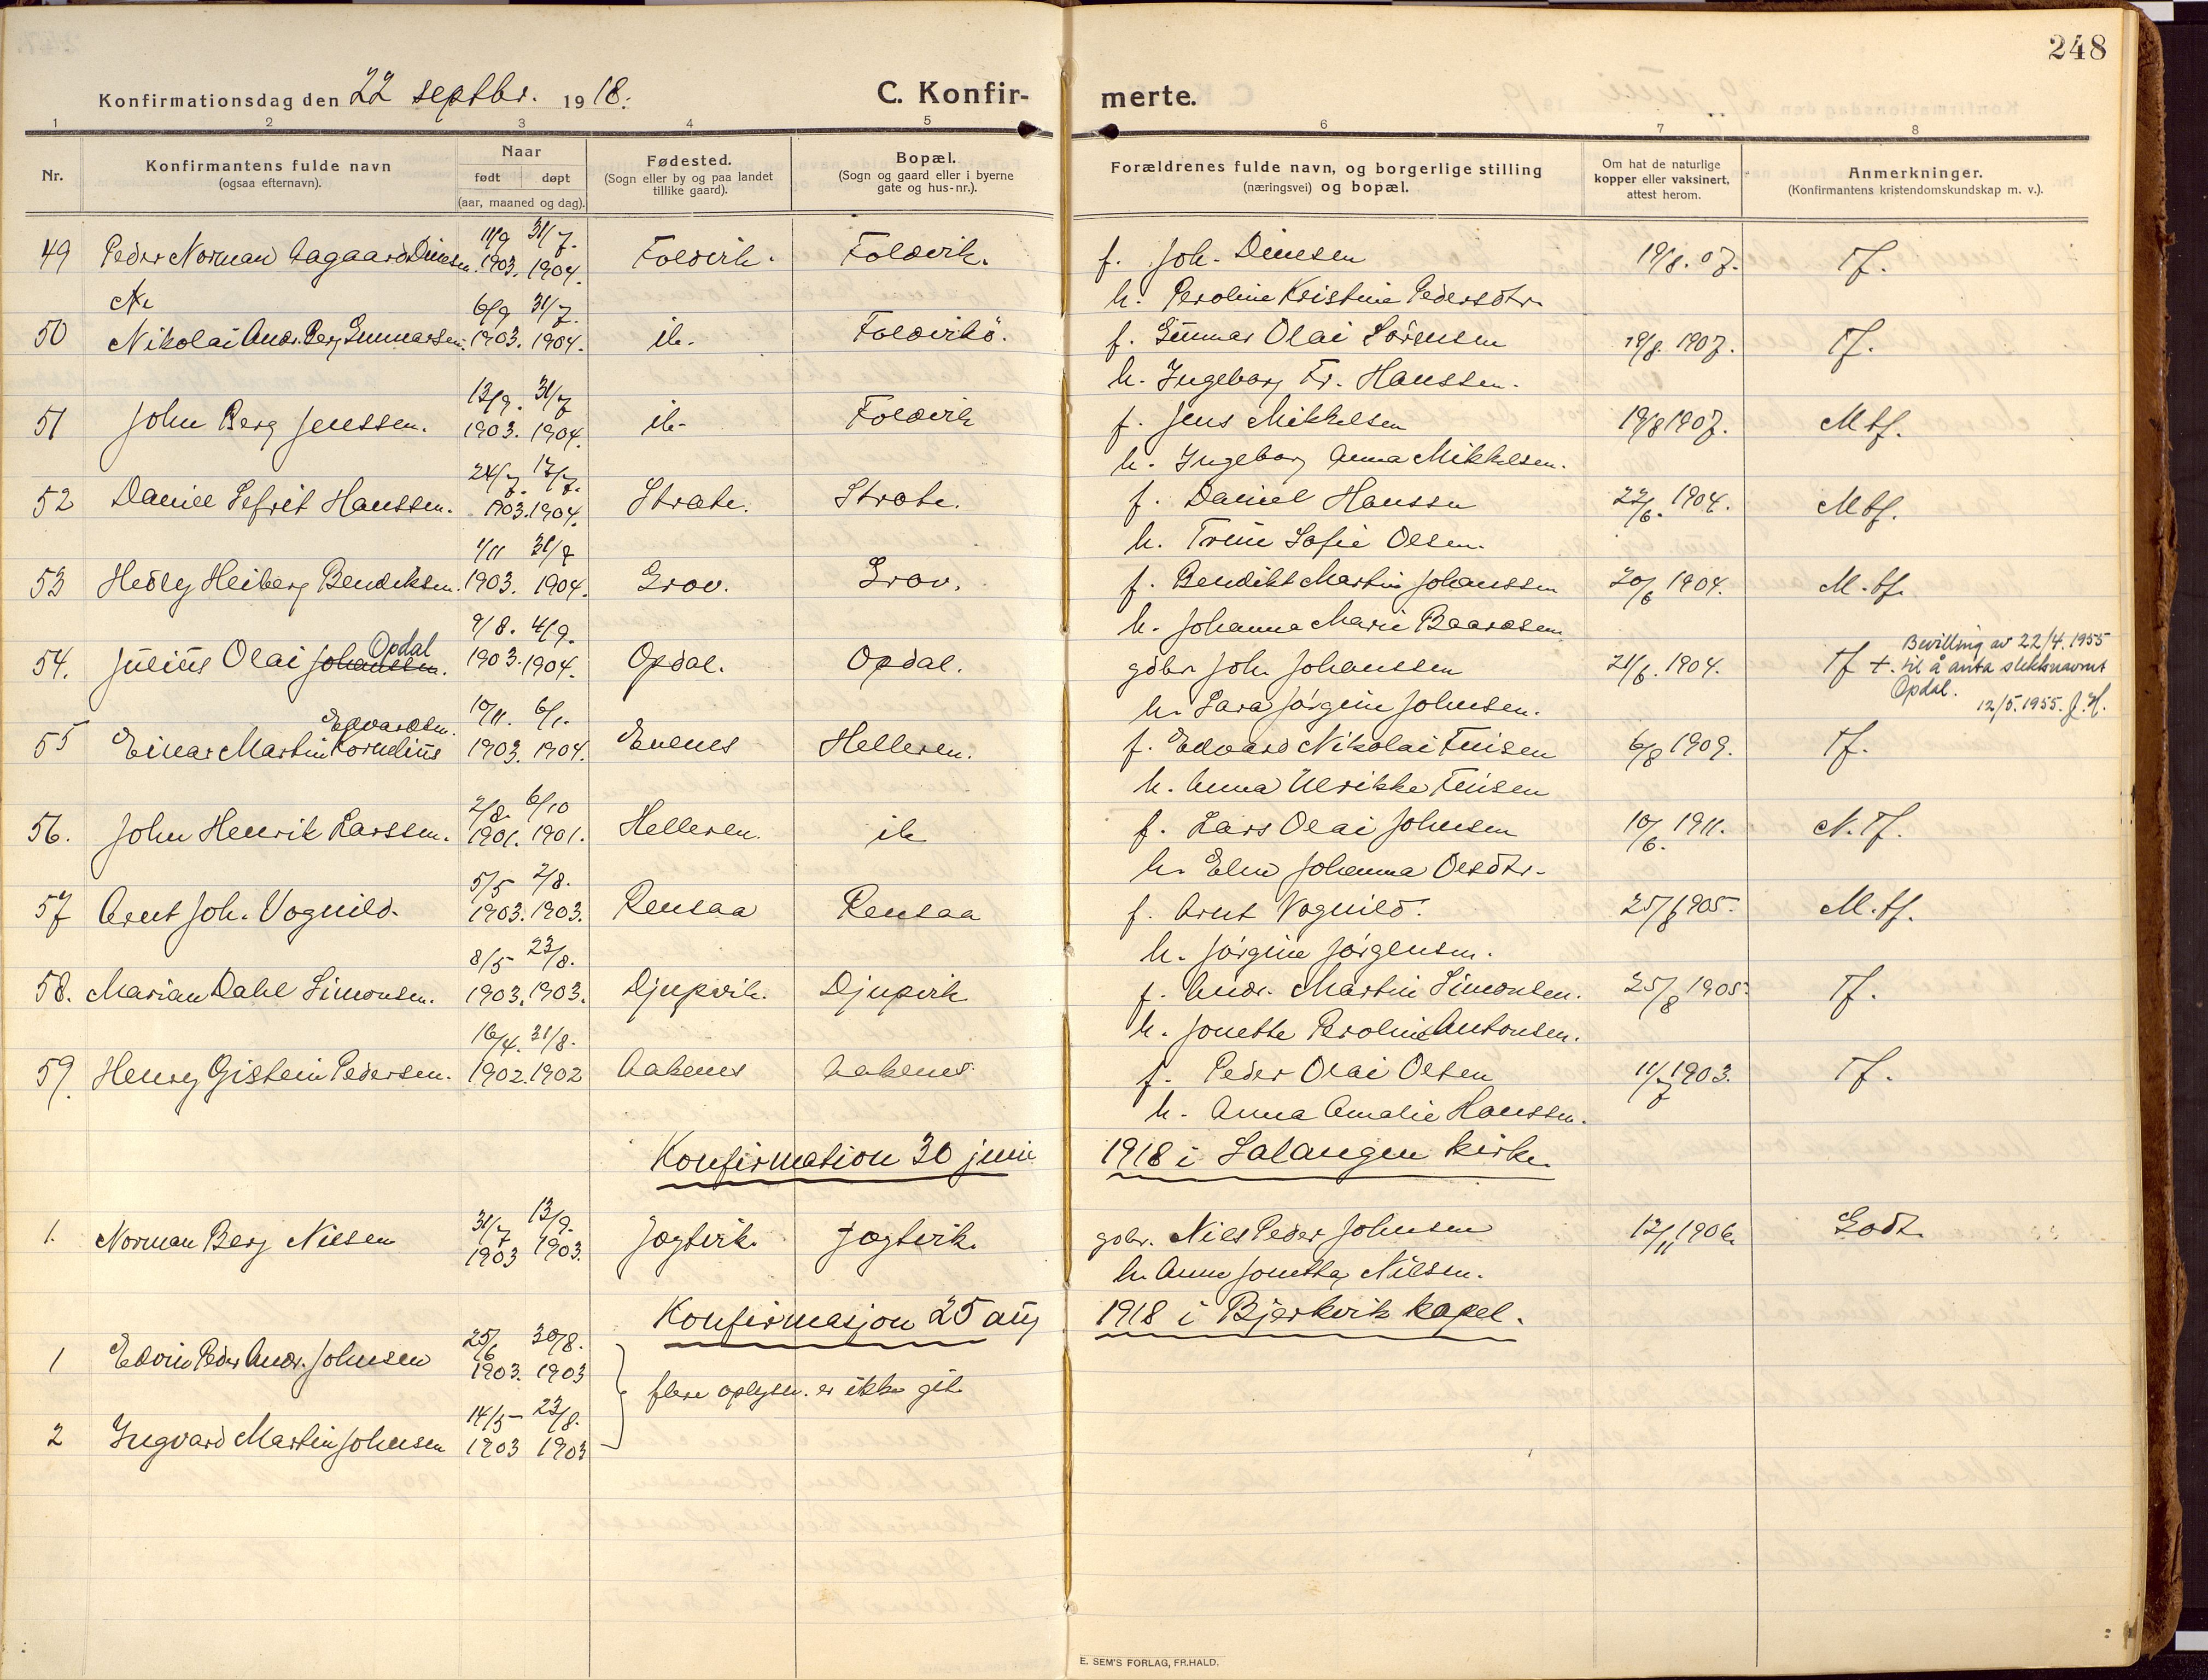 248
Konfirmationsdag den 22 septbr. 1918.
C. Konfir-
merte.
1 2 3 4 5 6 7 8
Nr.
Konfirmantens fulde navn
(ogsaa efternavn).
Naar
født døpt
(aar, maaned og dag).
Fødested.
(Sogn eller by og paa landet
tillike gaard).
Bopæl.
(Sogn og gaard eller i byerne
gate og hus-nr.).
Forældrenes fulde navn, og borgerlige stilling
(næringsvei) og bopæl.
Om hat de naturlige
kopper eller vaksinert,
attest herom.
Anmerkninger.
(Konfirmantens kristendomskundskap m. v.).
11/9 31/7.
49 Peder Norman Aagaard Dinesen. 1903. 1904. Foldvik. Foldvik. f. Joh. Dinesen 19/8. 07. Tf.
h. Peroline Kristine Pedersdtr.
Ni
6/9 31/7.
50 Nikolai Andr. Berg Gunnarsen. 1903. 1904. ib. Foldvikö. f. Gunnar Olai Sörensen 19/8. 1907. Tf.
h. Ingeborg Fr. Hanssen.
13/9. 31/7
51 John Berg Jenssen. 1903. 1904. ib. Foldvik f. Jens Mikkelsen 19/8 1907. Mtf.
h. Ingeborg Anna Mikkelsen.
24/7. 17/7.
52 Daniel Sefrit Hanssen. 1903. 1904. Stræte. Stræte. f. Daniel Hanssen 22/6. 1904. Mtf.
h. Trine Sofie Olsen.
1/11 31/7
53 Hedly Heiberg Bendiksen. 1903. 1904. Grov. Grov. f. Bendikt Martin Johanssen 20/6 1904. M. tf.
h. Johanna Marie Baardsen
9/8. 4/9.
Opdal
54. Julius Olai Johanssen. 1903. 1904. Opdal. Opdal. gdbr Joh. Johanssen 21/6. 1904. Tf +. Bevilling av 22/4. 1955
til å anta slektsnavnet
Opdal.
12/5. 1955. J. H.
h. Lara Jörgine Johnsen.
10/11. 6/1.
Edvardsen.
55 Einar Martin Kornelius 1903. 1904. Evenes Helleren. f. Edvard Nikolai Finsen 6/8 1909. Tf.
h. Anna Ulrikke Finsen
2/8. 6/10
56. John Henrik Larssen. 1901. 1901. Helleren. ib f. Lars Olai Johnsen 10/6. 1911. N. Tf.
h. Elen Johanna Olsdtr.
5/5 2/8.
57 Arnt Joh. Vognild. 1903. 1903. Rensaa Rensaa f. Arnt Vognild. 25/8 1905. M. tf.
h. Jörgine Jörgensen.
8/5 23/8.
58. Marian Dahl Simonsen. 1903. 1903. Djupvik. Djupvik f. Andr. Martin Simonsen. 25/8 1905. Tf.
h. Jonette Peroline Antonsen.
16/4. 31/8.
59. Henry Gistein Pedersen. 1902. 1902 Aakenes Aakenes f. Peder Olai Olsen 11/7 1903. Tf.
h. Anna Amalie Hanssen.
Konfirmation 30 juni 1918 i Salangen kirke.
31/7 13/9.
1. Norman Berg Nilsen 1903 1903. Jægtvik. Jægtvik. gdbr. Nils Peder Johnsen 12/11 1906. Godt.
h. Anne Jonetta Nilsen.
Konfirmasjon 25 aug 1918 i Bjerkvik kapel.
25/6 30/8.
1 Edvin Peder Andr. Johnsen 1903. 1903
flere oplysn. er ikke git.
14/5 23/8.
2 Ingvard Martin Johnsen 1903 1903
E. SEM'S FORLAG, FR.HALD.